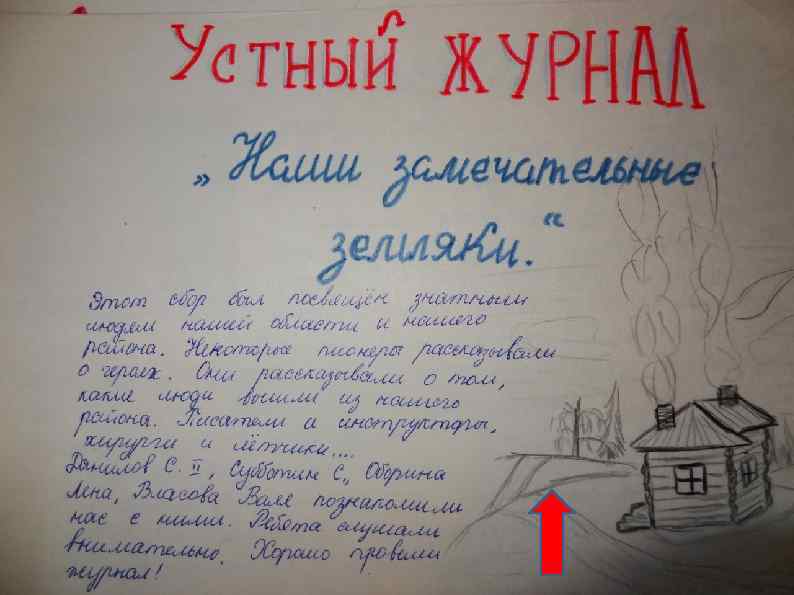 Устный журнал
„Наши замечательные
земляки.“
Этот сбор был посвящён знатным
людям нашей области и нашего
района. Некоторые пионеры рассказывали
о героях. Они рассказывали о том,
какие люди вышли из нашего
района. Писатели и инструкторы,
хирурги и лётчики....
Данилов С. II, Субботин С., Оборина
Лена, Власова Валя познакомили
нас с ними. Ребята слушали
внимательно. Хорошо провели
журнал!